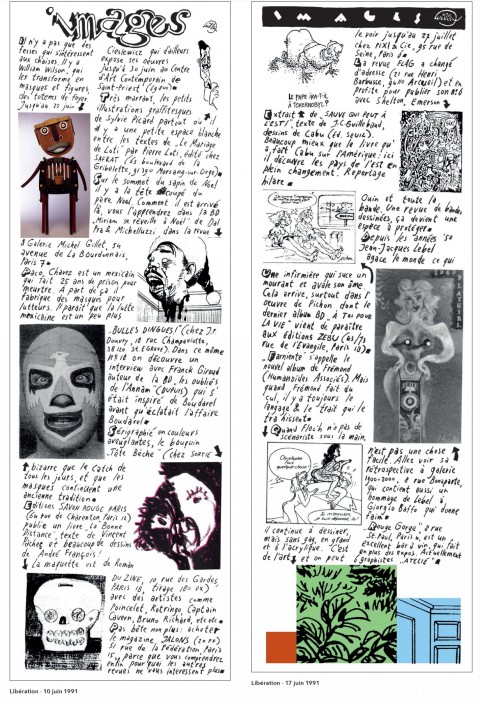 images
Il n'y a pas que des
fesses qui s'intéressent
aux chaises. Il y a
William Wilson, qui
les transforme en
masques et figures,
des totems de foyer.
Jusqu'au 22 juin
à Galerie Michel Gillet, 54
avenue de La Bourdonnais,
Paris 7.
Paco Chavez est un mexicain
qui fait 25 ans de prison pour
meurtre. A part ça il
fabrique des masques pour
lutteurs. Il paraît que la lutte
mexicaine est un peu plus
bizarre que le catch de
tous les jours, et que les
masques continuent une
ancienne tradition.
Editions SAVON ROUGE PARIS
publie un livre "La Bonne
Distance", texte de Vincent
Pachès et beaucoup de dessins
de André François!
La maquette est de Roman
Cieslewicz qui d'ailleurs
expose ses oeuvres
jusqu'à 30 juin au Centre
d'Art Contemporain de
Saint-Priest
Très marrant, les petits
illustrations graffitesques
de Sylvie Picard partout où
il y a une petite espace blanche
entre les textes de "Le Mariage
de Luti" par Pierre Luti, édité chez
SAFRAT (63 boulevard de la
Gribelette, 91390 Morsang-sur-Orge)
Sur le sommet du sapin de Noël
il y a la tête coupé du
père Noël. Comment il est arrivé
là, vous l'apprendrez dans la BD
"Miriam se réveille à Noël" de Dal
Pra & Micheluzzi, dans la revue
"BULLES DINGUES!" (chez J.
Douvry, 10 rue Champaviotte,
38120 ST. EGREVE). Dans ce même
N° 18 on découvre un
interview avec Franck Giroud
auteur de la BD "les oubliés
de l'Annam" (DUPUIS) qui s'
était inspiré de Boudarel
avant qu'éclatait l'affaire
Boudarel.
Sérigraphié en couleurs
aveuglantes, le bouquin
"Tête Bêche" (chez SORTIE
DU ZINE, 10 rue des Gardes,
PARIS 18, tirage 180 ex)
avec des artistes comme
Poincelet, Rotringo, Captain
Cavern, Bruno Richard, etc etc.
Pas bête non plus: acheter
le magazine JALONS
si rue de la Fédération, Paris
15, parce que vous comprendrez
enfin pourquoi les autres
revues ne vous intéressent plus.
Libération - 10 juin 1991
IMAGES
LE PAPE IRA-T-IL
A TCHERNOBYL?
Extrait de "SAUVE QUI PEUT À
L'EST", texte de J.C. Guillebaud,
dessins de Cabu (éd. SEUIL).
Beaucoup mieux que le livre qu'
a fait Cabu sur l'Amérique: ici
il découvre les pays de l'Est en
plein changement. Reportage
hilare.
Une infirmière qui suce un
mourant et avale son âme.
Cela arrive, surtout dans l'
oeuvre de Pichon dont le
dernier album BD "À TOI POUR
LA VIE" vient de paraître
aux éditions ZEBU (61/73
rue de l'Evangile, Paris 18).
"Farniente" s'appelle le
nouvel album de Frémond
(Humanoïdes Associés). Mais
quand Frémond fait du
cul, il y a toujours le
langage & le trait qui le
trahissent.
Quand Floc'h n'a pas de
scénariste sous la main,
il continue à dessiner,
mais sans gag, en grand
et à l'acrylique. C'est
de l'art, et on peut
le voir jusqu'au 27 juillet
chez PIXI & Cie, 95 rue de
Seine, Paris 6.
La revue FLAG a changé
d'adresse (21 rue Henri
Barbusse, 94110 Arcueil) et en
profite pour publier son N°6
avec Shelton, Emerson
Ouin et toute la
bande. Une revue de bandes
dessinées, ça devient une
espèce à protéger.
Depuis les années '50
Jean-Jacques Lebel
agace le monde ce qui
n'est pas une chose
facile. Allez voir sa
rétrospective à galerie
1900-2000, 8 rue Bonaparte,
qui contient aussi un
hommage de Lebel à
Giorgio Baffo qui donne
faim.
Rouge Gorge, 8 rue
St. Paul, Paris 4, est un
excellent bar à vin, qui fait
en plus des expos. Actuellement
6 graphistes "ATELIE".
Libération - 17 juin 1991